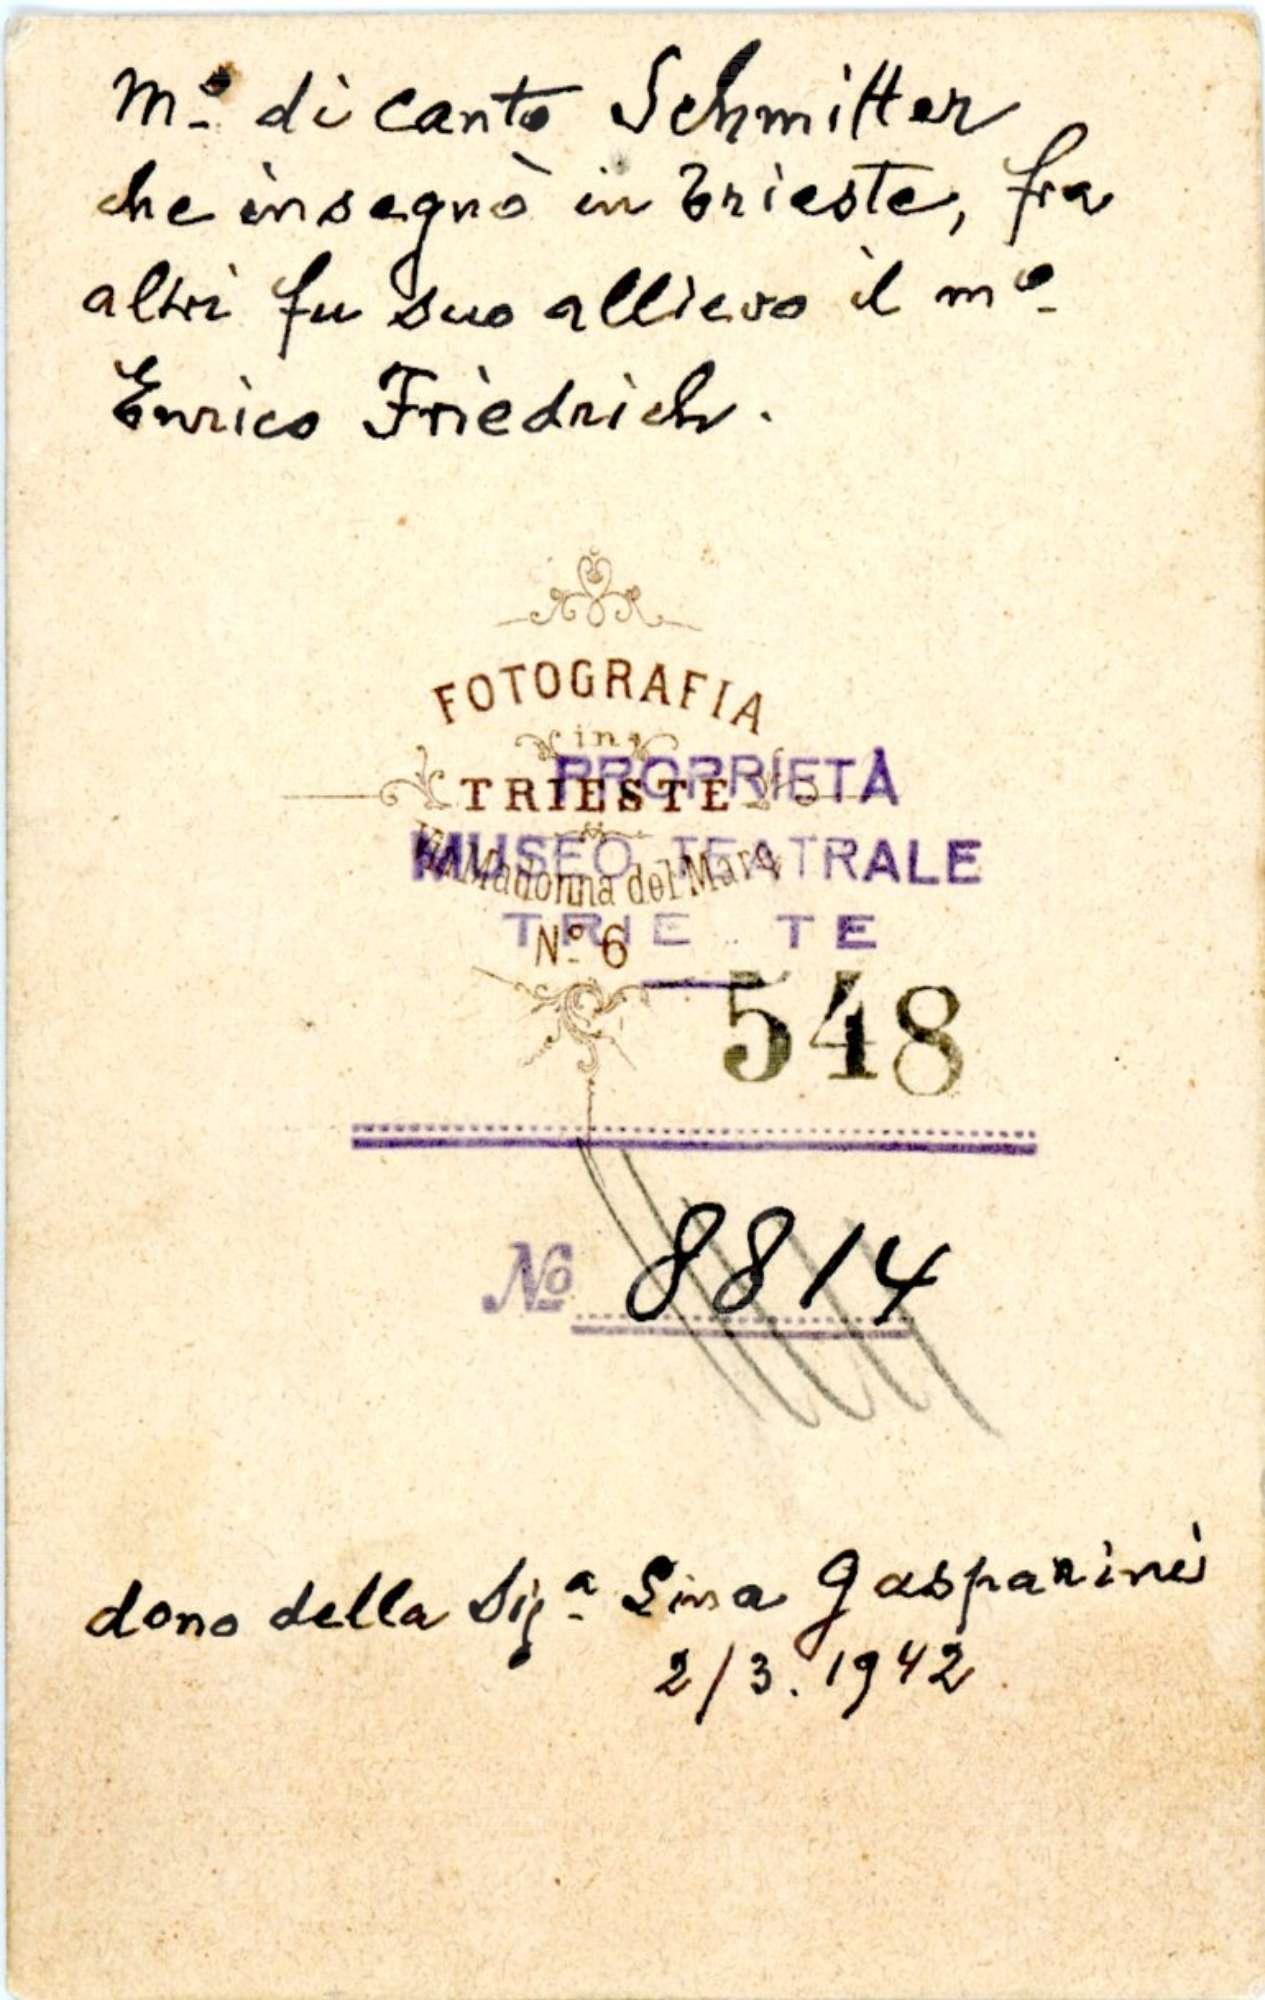 Mº di canto Schmitter
che insegnò in Trieste, fra
altri fu suo allievo il mº
Enrico Friedrich.
FOTOGRAFIA
in
TRIESTE
Via Madonna del Mare
Nº 6
PROPRIETÀ
MUSEO TEATRALE
TRIE TE
548
Nº 8814
dono della Sigª Lina Gasparini
2/3. 1942